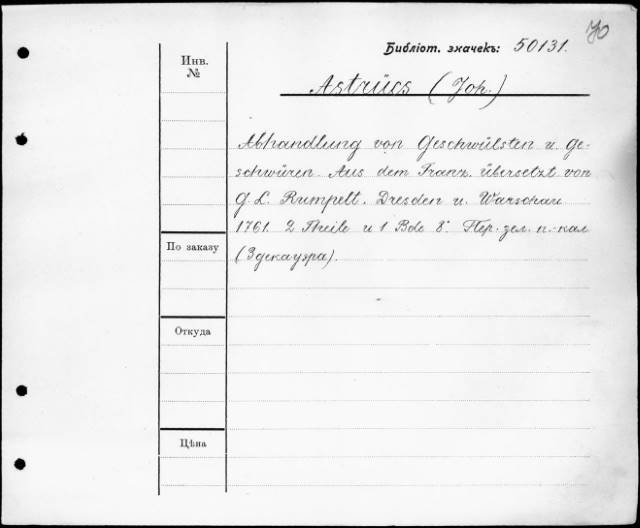 70
Библіот. значекъ: 50131.
Инв.
№
Astrücs (Joh.)
Abhandlung von Geschwülsten u. Ge-
schwüren. Aus dem Franz. übersetzt von
G. L. Rumpelt. Dresden u. Warschau
1761. 2 Theile и 1 Bde 8°. Пер. зел. п.-кал
(Здекауэра).
По заказу
Откуда
Цѣна